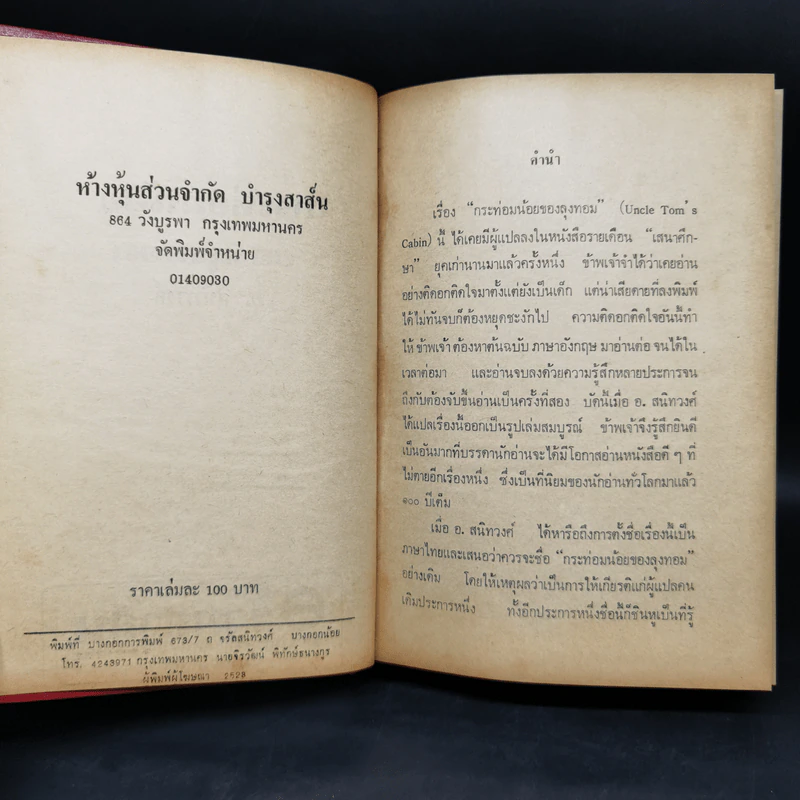 ห้างหุ้นส่วนจำกัด บำรุงสาส์น
864 วังบูรพา กรุงเทพมหานคร
จัดพิมพ์จำหน่าย
01409030
ราคาเล่มละ 100 บาท
พิมพ์ที่ บางกอกการพิมพ์ 673/7 ถ จรัลสนิทวงศ์ บางกอกน้อย
โทร. 4243971 กรุงเทพมหานคร นายจิรวัฒน์ พิทักษ์ธนางกูร
ผู้พิมพ์ผู้โฆษณา 2528
คำนำ
เรื่อง “กระท่อมน้อยของลุงทอม” (Uncle Tom's
Cabin) นี้ ได้เคยมีผู้แปลลงในหนังสือรายเดือน “เสนาศึก-
ษา” ยุคเก่านานมาแล้วครั้งหนึ่ง ข้าพเจ้าจำได้ว่าเคยอ่าน
อย่างติดอกติดใจมาตั้งแต่ยังเป็นเด็ก แต่น่าเสียดายที่ลงพิมพ์
ได้ไม่ทันจบก็ต้องหยุดชะงักไป ความติดอกติดใจอันนี้ทำ
ให้ ข้าพเจ้า ต้องหาต้นฉบับ ภาษาอังกฤษ มาอ่านต่อ จนได้ใน
เวลาต่อมา และอ่านจบลงด้วยความรู้สึกหลายประการจน
ถึงกับต้องจับขึ้นอ่านเป็นครั้งที่สอง บัดนี้เมื่อ อ. สนิทวงศ์
ได้แปลเรื่องนี้ออกเป็นรูปเล่มสมบูรณ์ ข้าพเจ้าจึงรู้สึกยินดี
เป็นอันมากที่บรรดานักอ่านจะได้มีโอกาสอ่านหนังสือดี ๆ ที่
ไม่ตายอีกเรื่องหนึ่ง ซึ่งเป็นที่นิยมของนักอ่านทั่วโลกมาแล้ว
๑๐๐ ปีเต็ม
เมื่อ อ. สนิทวงศ์ ได้หารือถึงการตั้งชื่อเรื่องนี้เป็น
ภาษาไทยและเสนอว่าควรจะชื่อ “กระท่อมน้อยของลุงทอม”
อย่างเดิม โดยให้เหตุผลว่าเป็นการให้เกียรติแก่ผู้แปลคน
เดิมประการหนึ่ง ทั้งอีกประการหนึ่งชื่อนี้ก็ชินหูเป็นที่รู้